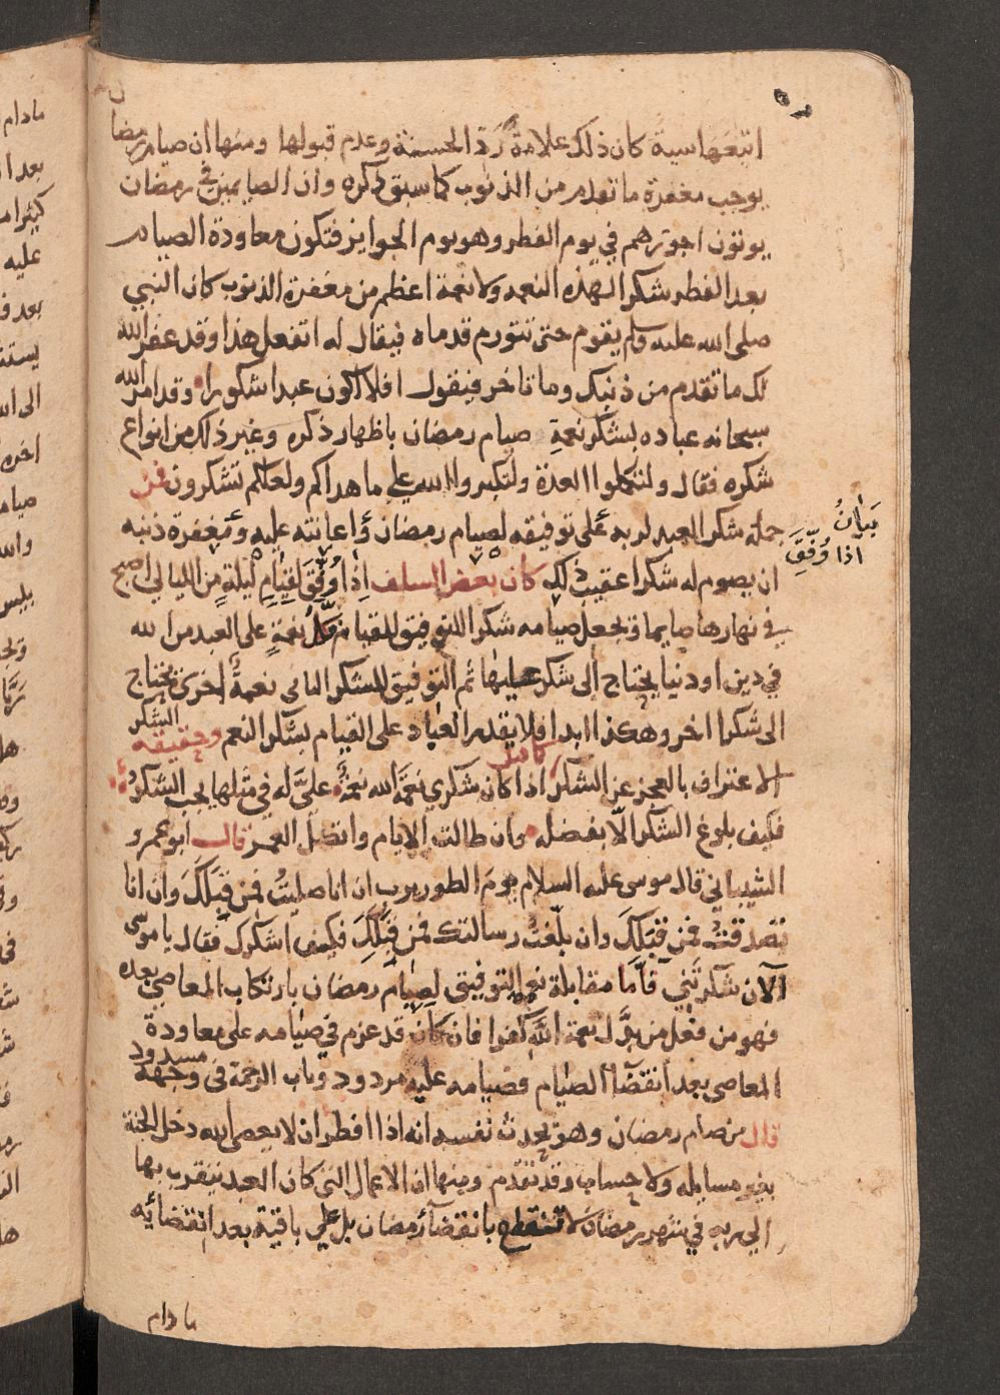 اتبعها سية كان ذلك علامة رد الحسنة وعدم قبولها ومنها ان صيام رمضان
يوجب مغفرة ما تقدم من الذنوب كما سبق ذكره وان الصايمين في رمضان
يوتون اجورهم في يوم الفطر وهو يوم الجوايز فتكون معاودة الصيام
بعد الفطر شكرا لهذه النعمه ولا نعمة اعظم من مغفرة الذنوب كان النبي
صلى الله عليه وسلم يقوم حتى تتورم قدماه فيقال له اتفعل هذا وقد غفر الله
لك ما تقدم من ذنبك وما تاخر فيقول افلا اكون عبدا شكورا وقد امر الله
سبحانه عباده بشكر نعمة صيام رمضان باظهار ذكره وغير ذلك من انواع
شكره فقال ولتكملوا العدة ولتكبروا الله على ما هداكم ولعلكم تشكرون فمن
بيان
اذا وُفِّقَ
جملة شكر العبد لربه على توفيقه لصيام رمضان واعانته عليه ومغفرة ذنبه
ان يصوم له شكرا عقيب ذلك كان بعض السلف اذا وُفِّقَ لقيام ليلةٍ من الليالي اصبح
في نهارها صايما ويجعل صيامه شكرا للتوفيق للقيام فكل نعمةٍ على العبد من الله
في دين او دنيا يحتاج الى شكر عليها ثم التوفيق للشكر الثاني نعمةٌ اخرى يحتاج
الى شكرا اخر وهكذا ابدا فلا يقدر العباد على القيام بشكر النعم وحقيقه الشكر
الاعتراف بالعجز عن الشكر كما قيل اذا كان شكري نعمَةَ الله نعمةٌ عليَّ له في مثلها يجب الشكرُ
فكيف بلوغ الشكر الّا بفضله وان طالت الايام واتصل العمر قال ابو عمرو
الشيباني قال موسى عليه السلام يوم الطور يرب ان انا صليتُ فمن قِبَلِكَ وان انا
تصدقتُ فمن قِبَلِكَ وان بلّغتُ رسالتك فمن قِبَلِكَ فكيف اشكرك فقال يا موسى
الآن شكرتَني فأمّا مقابلة نعم التوفيق لصيام رمضان بارتكاب المعاصي بعده
فهو من فعل من بدَّل نعمة الله كفرا فان كان قد عزم في صيامه على معاودة
المعاصي بعد انقضآ الصيام فصيامه عليه مردود وباب الرحمة في وجهه مسدود
قال من صام رمضان وهو يحدث نفسه انه اذا افطر ان لا يعصي الله دخل الجنة
بغير مسايله ولا حساب وقد تقدم ومنها ان الاعمال التي كان العبد يتقرب بها
الى ربه في شهر رمضان لا تنقطع بانقضآ رمضان بل هي باقية بعد انقضائه
ما دام